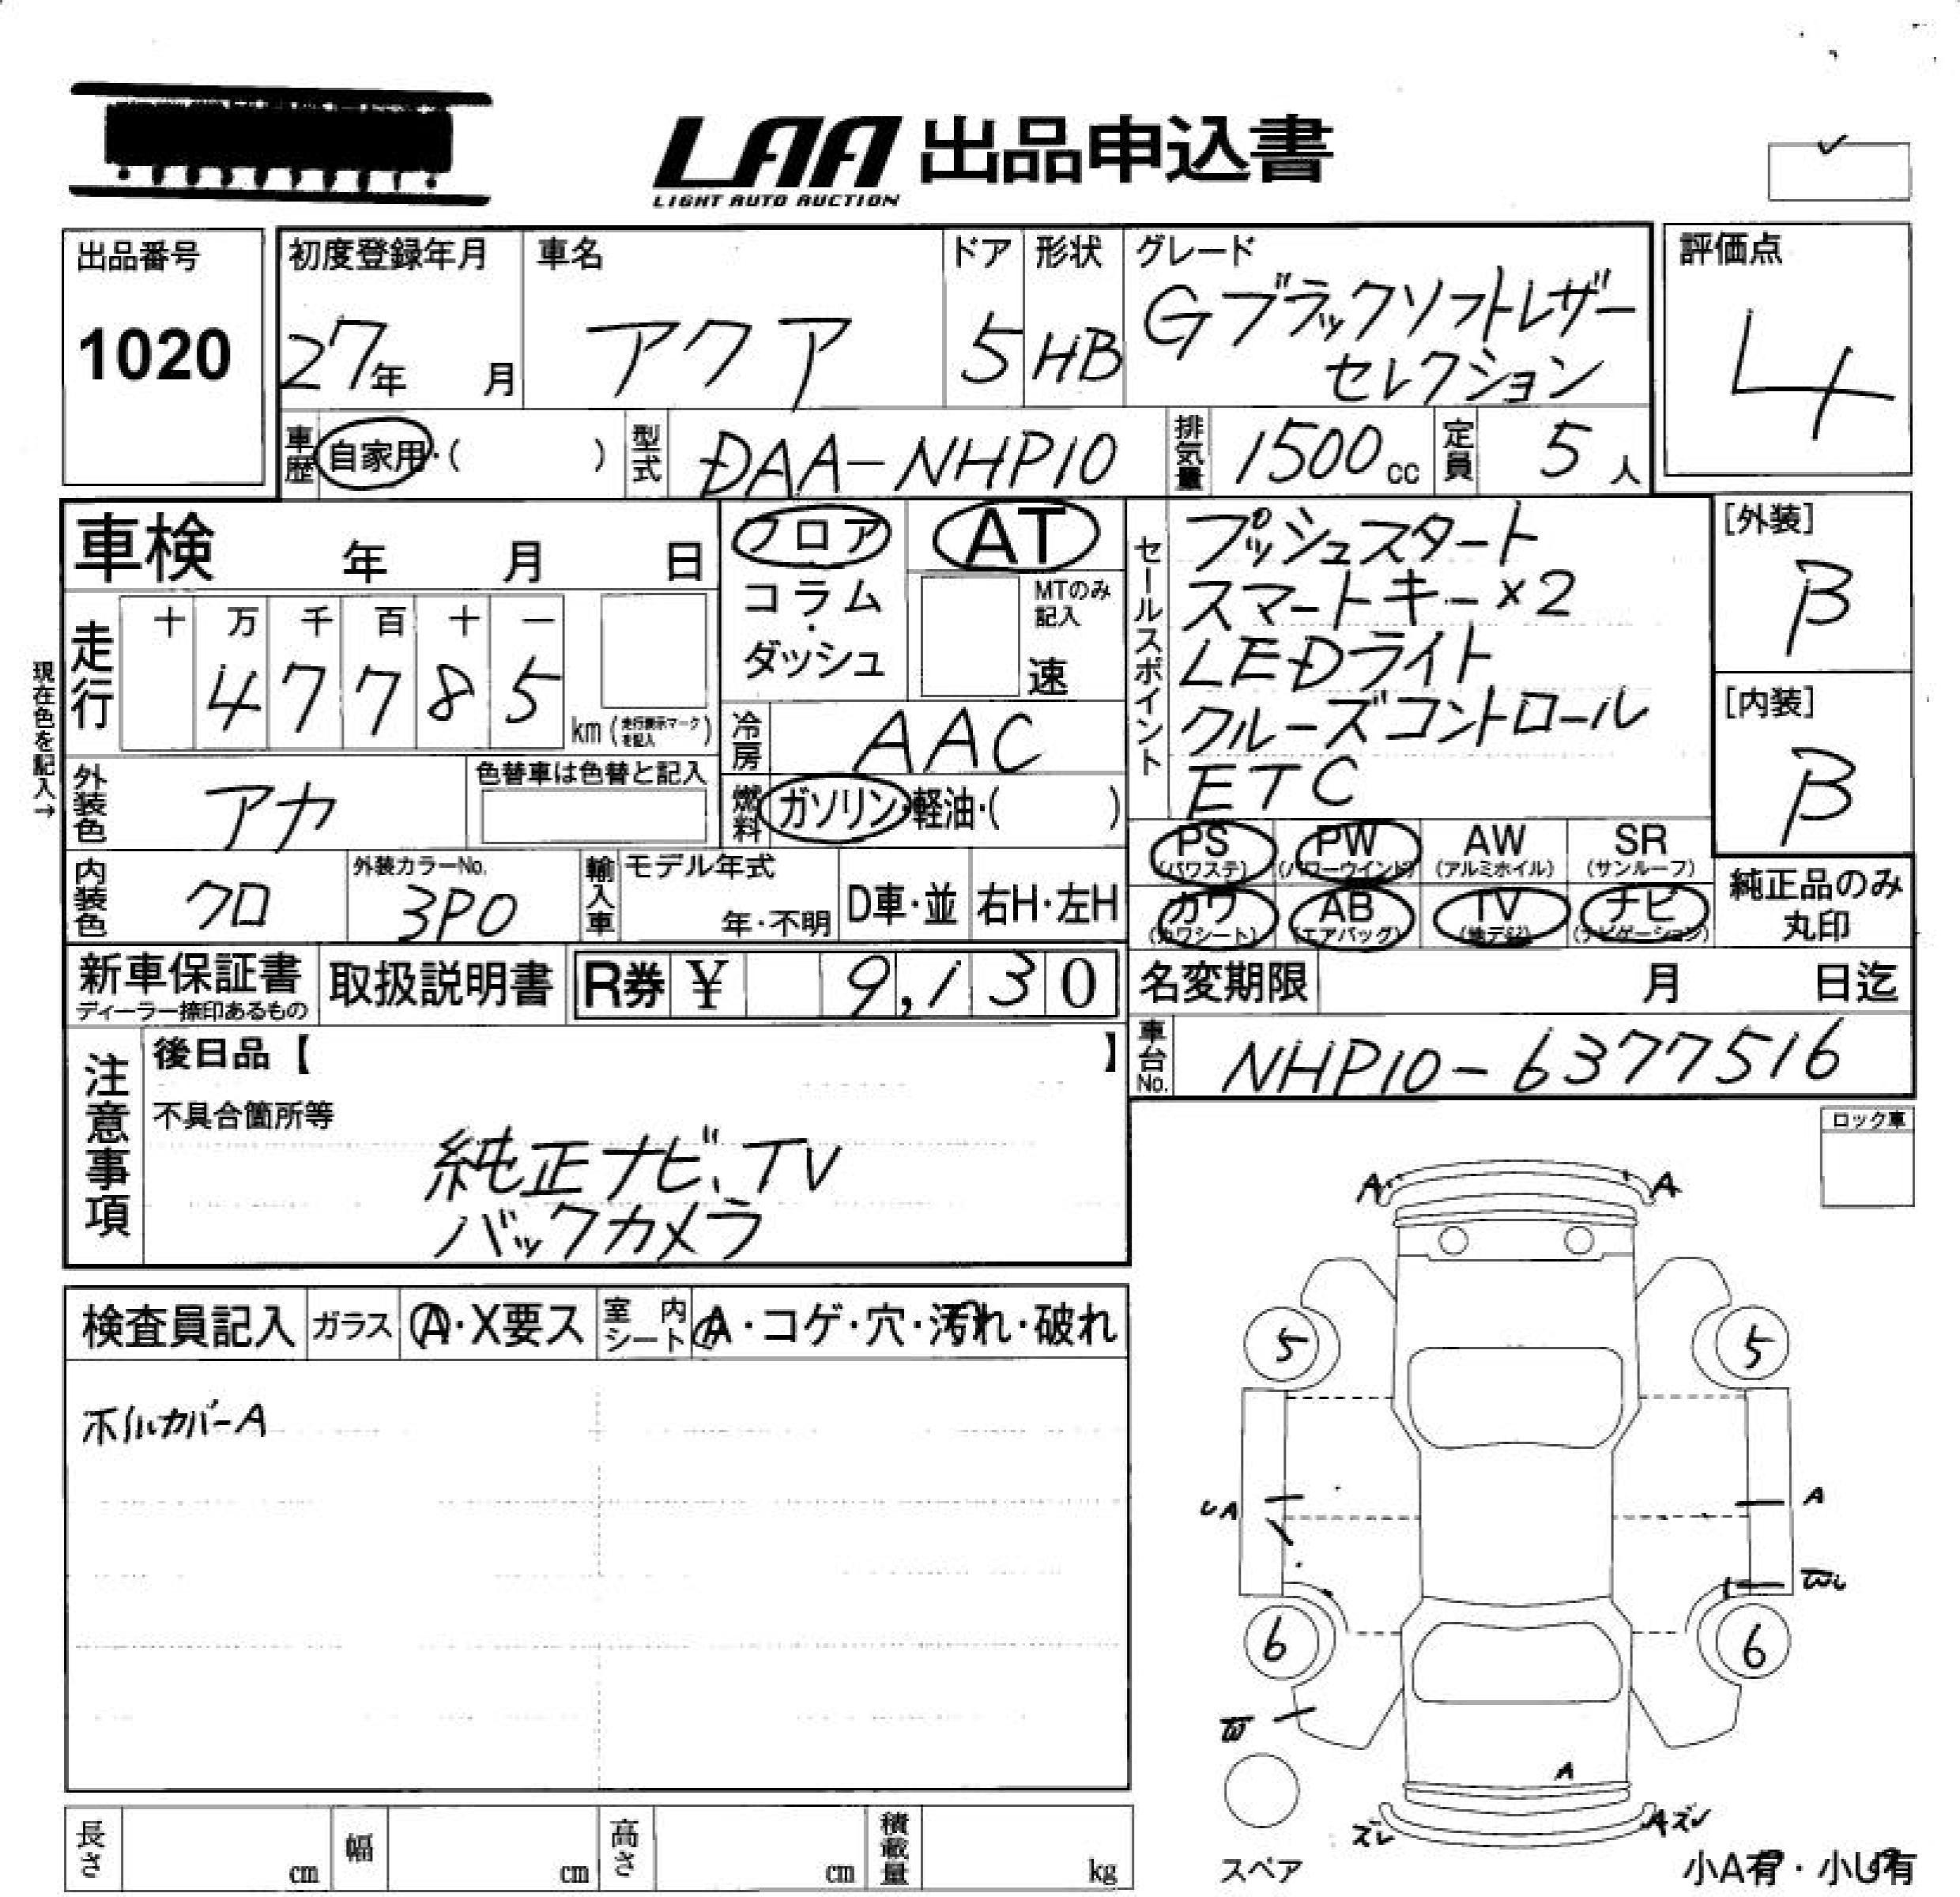 LAA 出品申込書
LIGHT AUTO AUCTION
出品番号
1020
初度登録年月
27年 月
車名
アクア
ドア
5
形状
HB
グレード
Gブラックソフトレザー
セレクション
評価点
4
車歴 自家用・( )
型式 DAA-NHP10
排気量 1500cc
定員 5人
車検 年 月 日
現在色を記入→
走行
十 万 千 百 十 一
4 7 7 8 5
km(走行表示マークを記入)
フロア
コラム
・
ダッシュ
AT
MTのみ
記入
速
冷房 AAC
燃料 ガソリン・軽油・( )
セールスポイント
プッシュスタート
スマートキー×2
LEDライト
クルーズコントロール
ETC
[外装]
B
[内装]
B
外装色 アカ
色替車は色替と記入
内装色 クロ
外装カラーNo.
3P0
輸入車
モデル年式
年・不明
D車・並
右H・左H
PS
(パワステ)
PW
(パワーウインド)
AW
(アルミホイル)
SR
(サンルーフ)
カワ
(カワシート)
AB
(エアバッグ)
TV
(地デジ)
ナビ
(ナビゲーション)
純正品のみ
丸印
新車保証書
ディーラー捺印あるもの
取扱説明書
R券 ¥ 9,130
名変期限 月 日迄
車台No. NHP10-6377516
注意事項
後日品【 】
不具合箇所等
純正ナビ、TV
バックカメラ
ロック車
検査員記入
ガラス A・X要ス
室内シート A・コゲ・穴・汚れ・破れ
ホイルカバーA
A A
5 5
UA A
6 6
W
A
ズレ Aズレ
スペア
小A有・小U有
長さ cm
幅 cm
高さ cm
積載量 kg